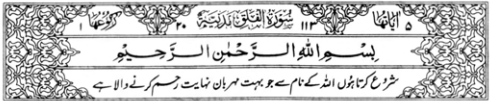 ۵ اٰيَاتُهَا ۱۱۳ سُوْرَةُ الْفَلَقِ مَدَنِيَّةٌ ۲۰ رُكُوْعُهَا ۱
بِسْمِ اللّٰهِ الرَّحْمٰنِ الرَّحِيْمِ
شروع کرتا ہوں اللہ کے نام سے جو بہت مہربان نہایت رحم کرنے والا ہے